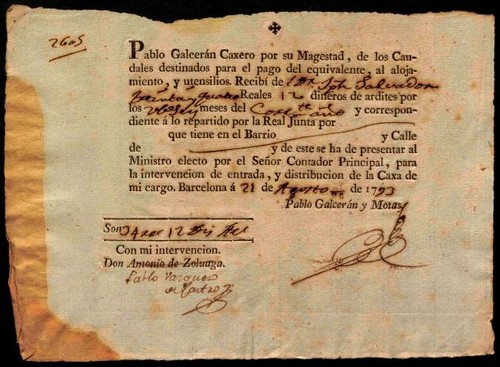 2605
Pablo Galcerán Caxero por su Magestad, de los Cau-
dales destinados para el pago del equivalente, al aloja-
miento, y utensilios. Recibí de Dn. Jph Salvador
treinta y quatro Reales 12 dineros de ardites por
los meses del Corrte. año y correspon-
diente á lo repartido por la Real Junta por
que tiene en el Barrio y Calle
de y de este se ha de presentar al
Ministro electo por el Señor Contador Principal, para
la intervencion de entrada, y distribucion de la Caxa de
mi cargo. Barcelona á 21 de Agosto de 1793
Pablo Galcerán y Motas.
Son 34 12
Con mi intervencion.
Don Antonio de Zoluaga.
Pablo Vazquez
de Castro